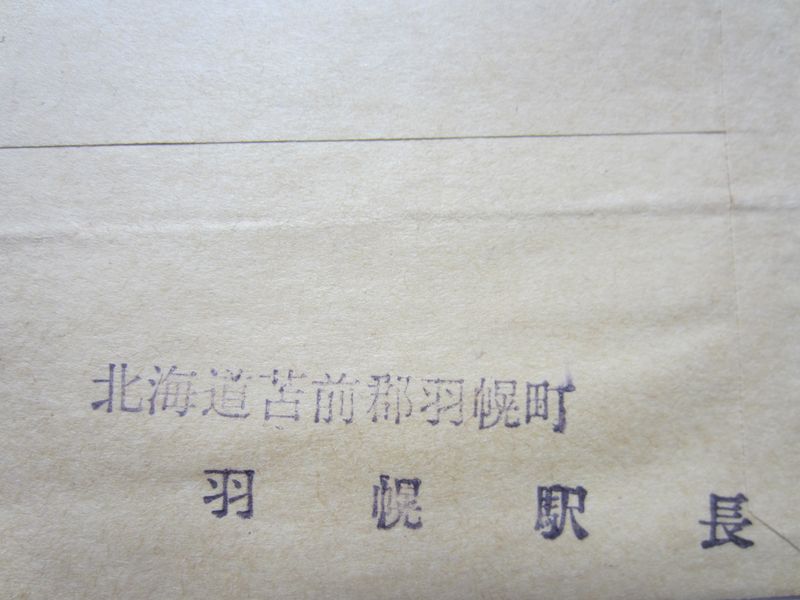 北海道苫前郡羽幌町
羽幌駅長